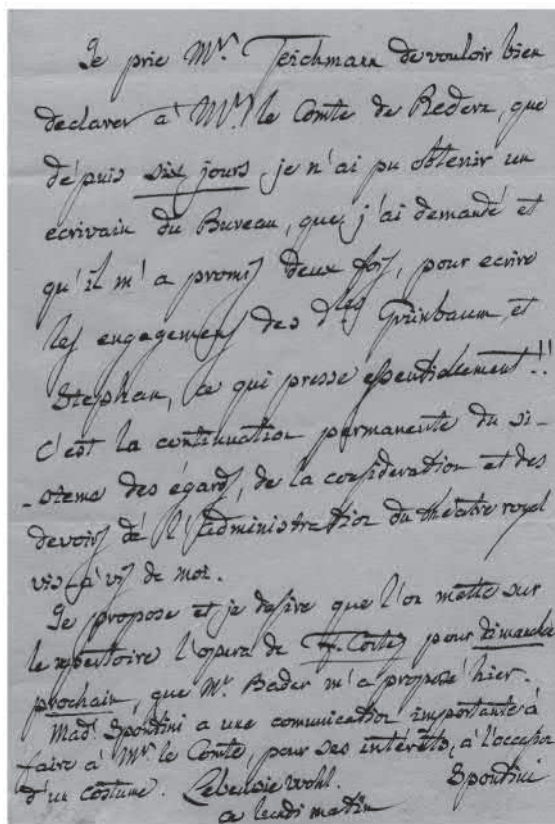 Je prie Mr. Teichmann de vouloir bien
declarer à Mr. le Comte de Redern, que
dépuis six jours je n'ai pu obtenir un
ecrivain du Bureau, que j'ai demandé et
qu'il m'a promis deux fois, pour ecrire
les engagemens des dlles Grünbaum et
Stephan, ce qui presse essentiellement!!
C'est la continuation permanente du si-
-stema des égards, de la consideration et des
devoirs de l'Administration du théatre royal
vis-à-vis de moi.
Je propose et je desire que l'on mette sur
le repertoire l'opera de F. Cortez pour Dimanche
prochain, que Mr. Bader m'a proposé hier.
Mad. Spontini a une comunication importante à
faire à Mr le Comte, pour ses intérêts, à l'occasion
d'un costume. Lebensie wohl. Spontini
ce lundi matin